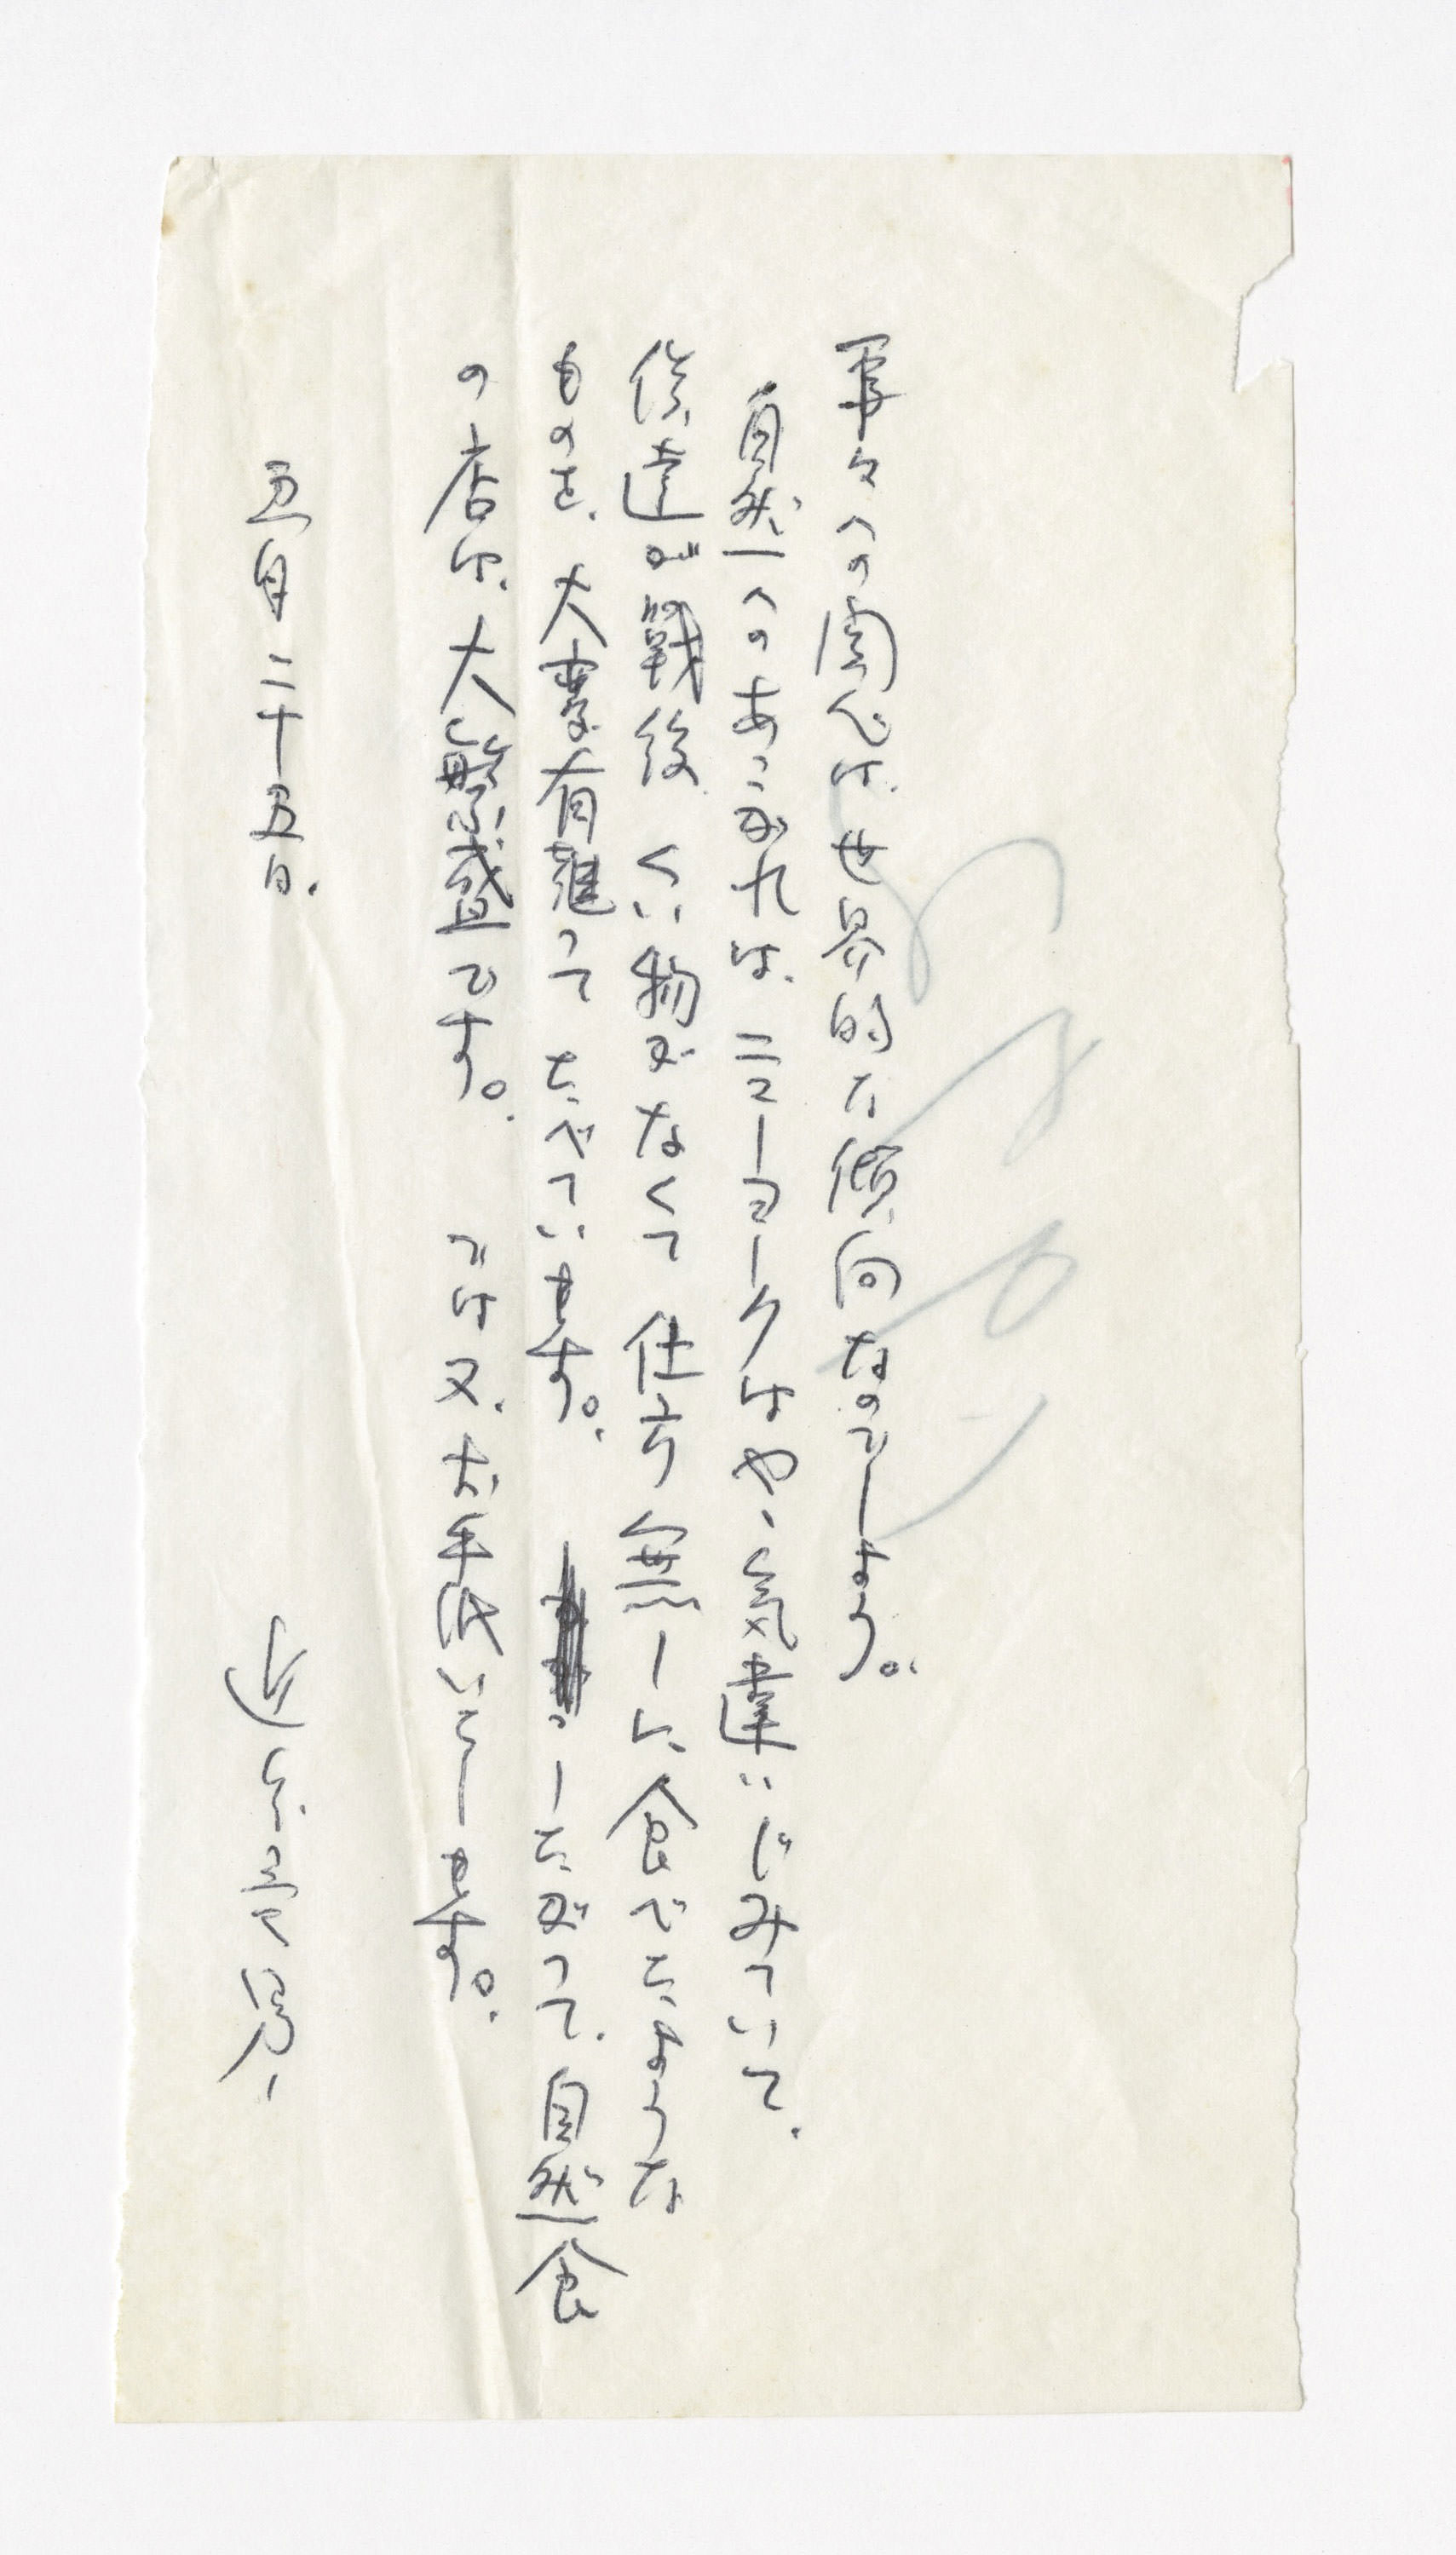 への関心は、世界的な傾向なのでしょう。
自然へのあこがれは、ニューヨークはやゝ気違いじみていて、
僕達が戦後 くい物がなくて 仕方無しに食べたような
ものを、大変有難って たべています。 したがって、自然食
の店は、大繁盛です。 では又、お手紙いたします。
五月二十五日。